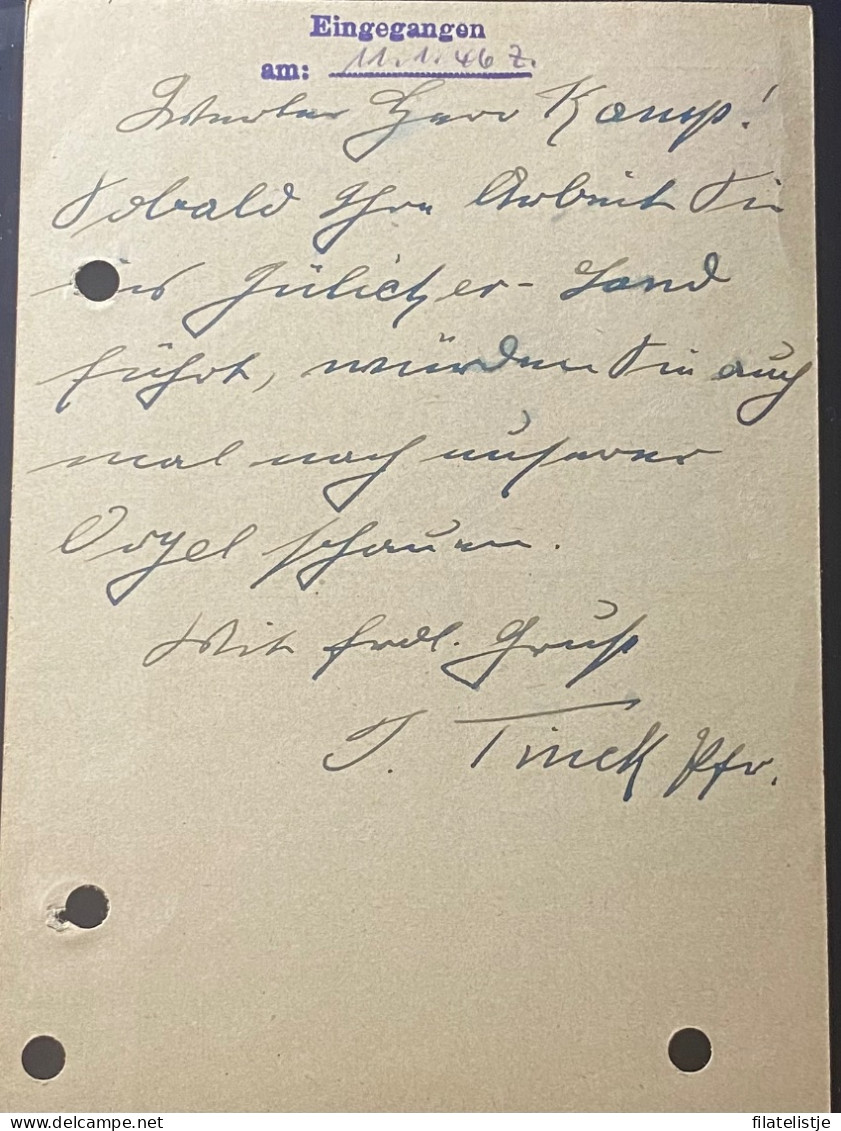 Eingegangen
am: 11.1.46 Z.
Werter Herr Kamp!
Sobald Ihre Arbeit Sie
ins Jülicher-Land
führt, würden Sie auch
mal nach unserer
Orgel schauen.
Mit frdl. Gruß
J. Tinck Pfr.
delcampe.net
filatelistje